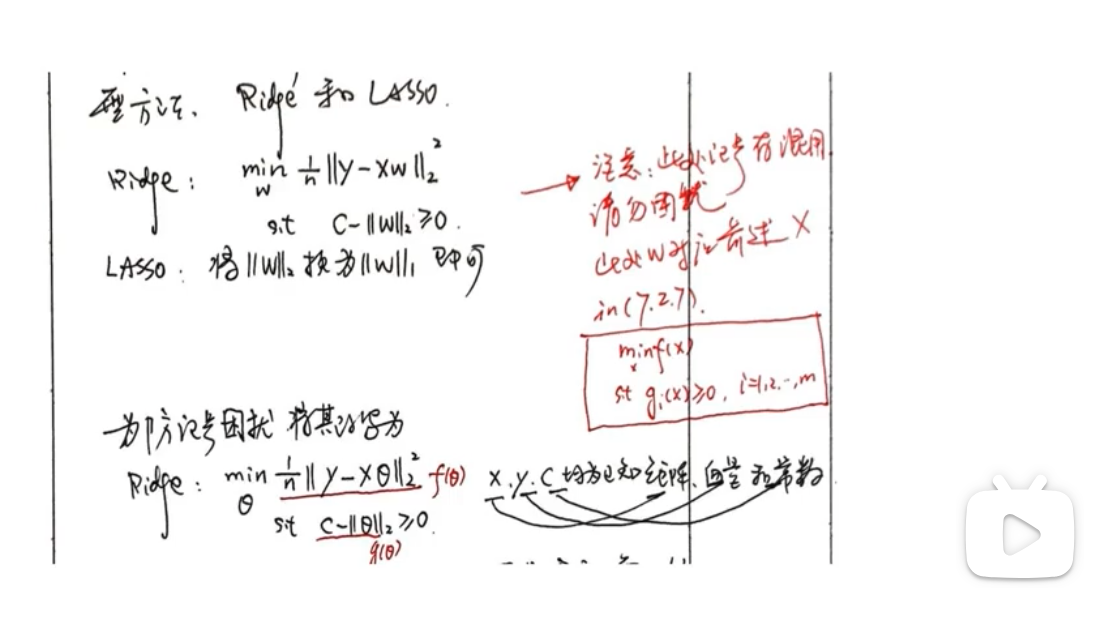 型方法、Ridge 和 LASSO.
Ridge: min_w 1/n ||y-Xw||₂²
s.t C-||w||₂ ≥0.
LASSO: 将||w||₂换为||w||₁ 即可
注意:此处记号有混用
请勿困扰
此处w对应前述X
in(7.2.7).
min_x f(x)
st g_i(x)≥0, i=1,2,…,m
为防记号困扰 将其改写为
Ridge: min_θ 1/n ||y-Xθ||₂² f(θ) X.y.C均为已知矩阵、向量和常数
s.t C-||θ||₂ ≥0.
g(θ)